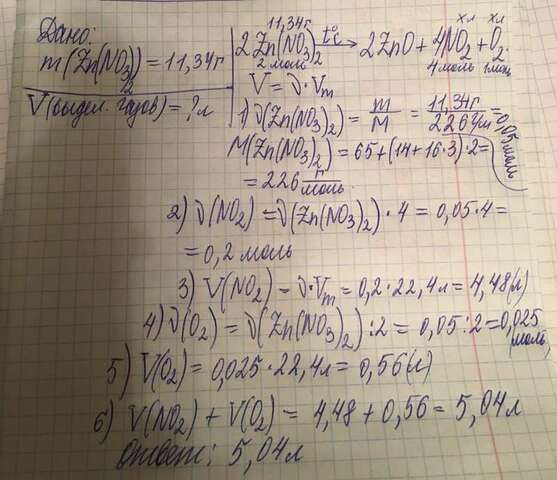 Дано:
m(Zn(NO3)2) = 11,34г
V(выдел. газов) = ? л
11,34г хл хл
2Zn(NO3)2 t°c→ 2ZnO + 4NO2 + O2.
2 моль 4 моль 1 моль
V = ν·Vm
1) ν(Zn(NO3)2) = m/M = 11,34г/226г/м = 0,05 моль
M(Zn(NO3)2) = 65+(14+16·3)·2 =
= 226 г/моль.
2) ν(NO2) = ν(Zn(NO3)2)·4 = 0,05·4 =
= 0,2 моль
3) V(NO2) = ν·Vm = 0,2·22,4л = 4,48(л)
4) ν(O2) = ν(Zn(NO3)2):2 = 0,05:2 = 0,025
моль
5) V(O2) = 0,025·22,4л = 0,56(л)
6) V(NO2) + V(O2) = 4,48 + 0,56 = 5,04л
Ответ: 5,04л